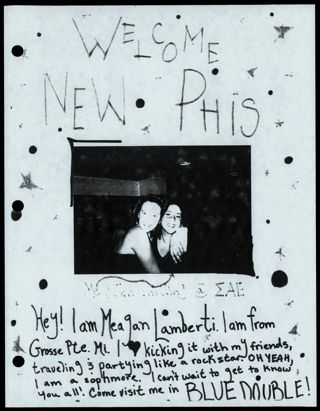 WELCOME
NEW PHIS
@ ΣAE
Hey! I am Meagan Lamberti. I am from
Grosse Pte. Mi. I ♥ kicking it with my friends,
traveling & partying like a rockstar OH YEAH,
I am a sophmore. I can't wait to get to know
you all! Come visit me in BLUE DOUBLE!